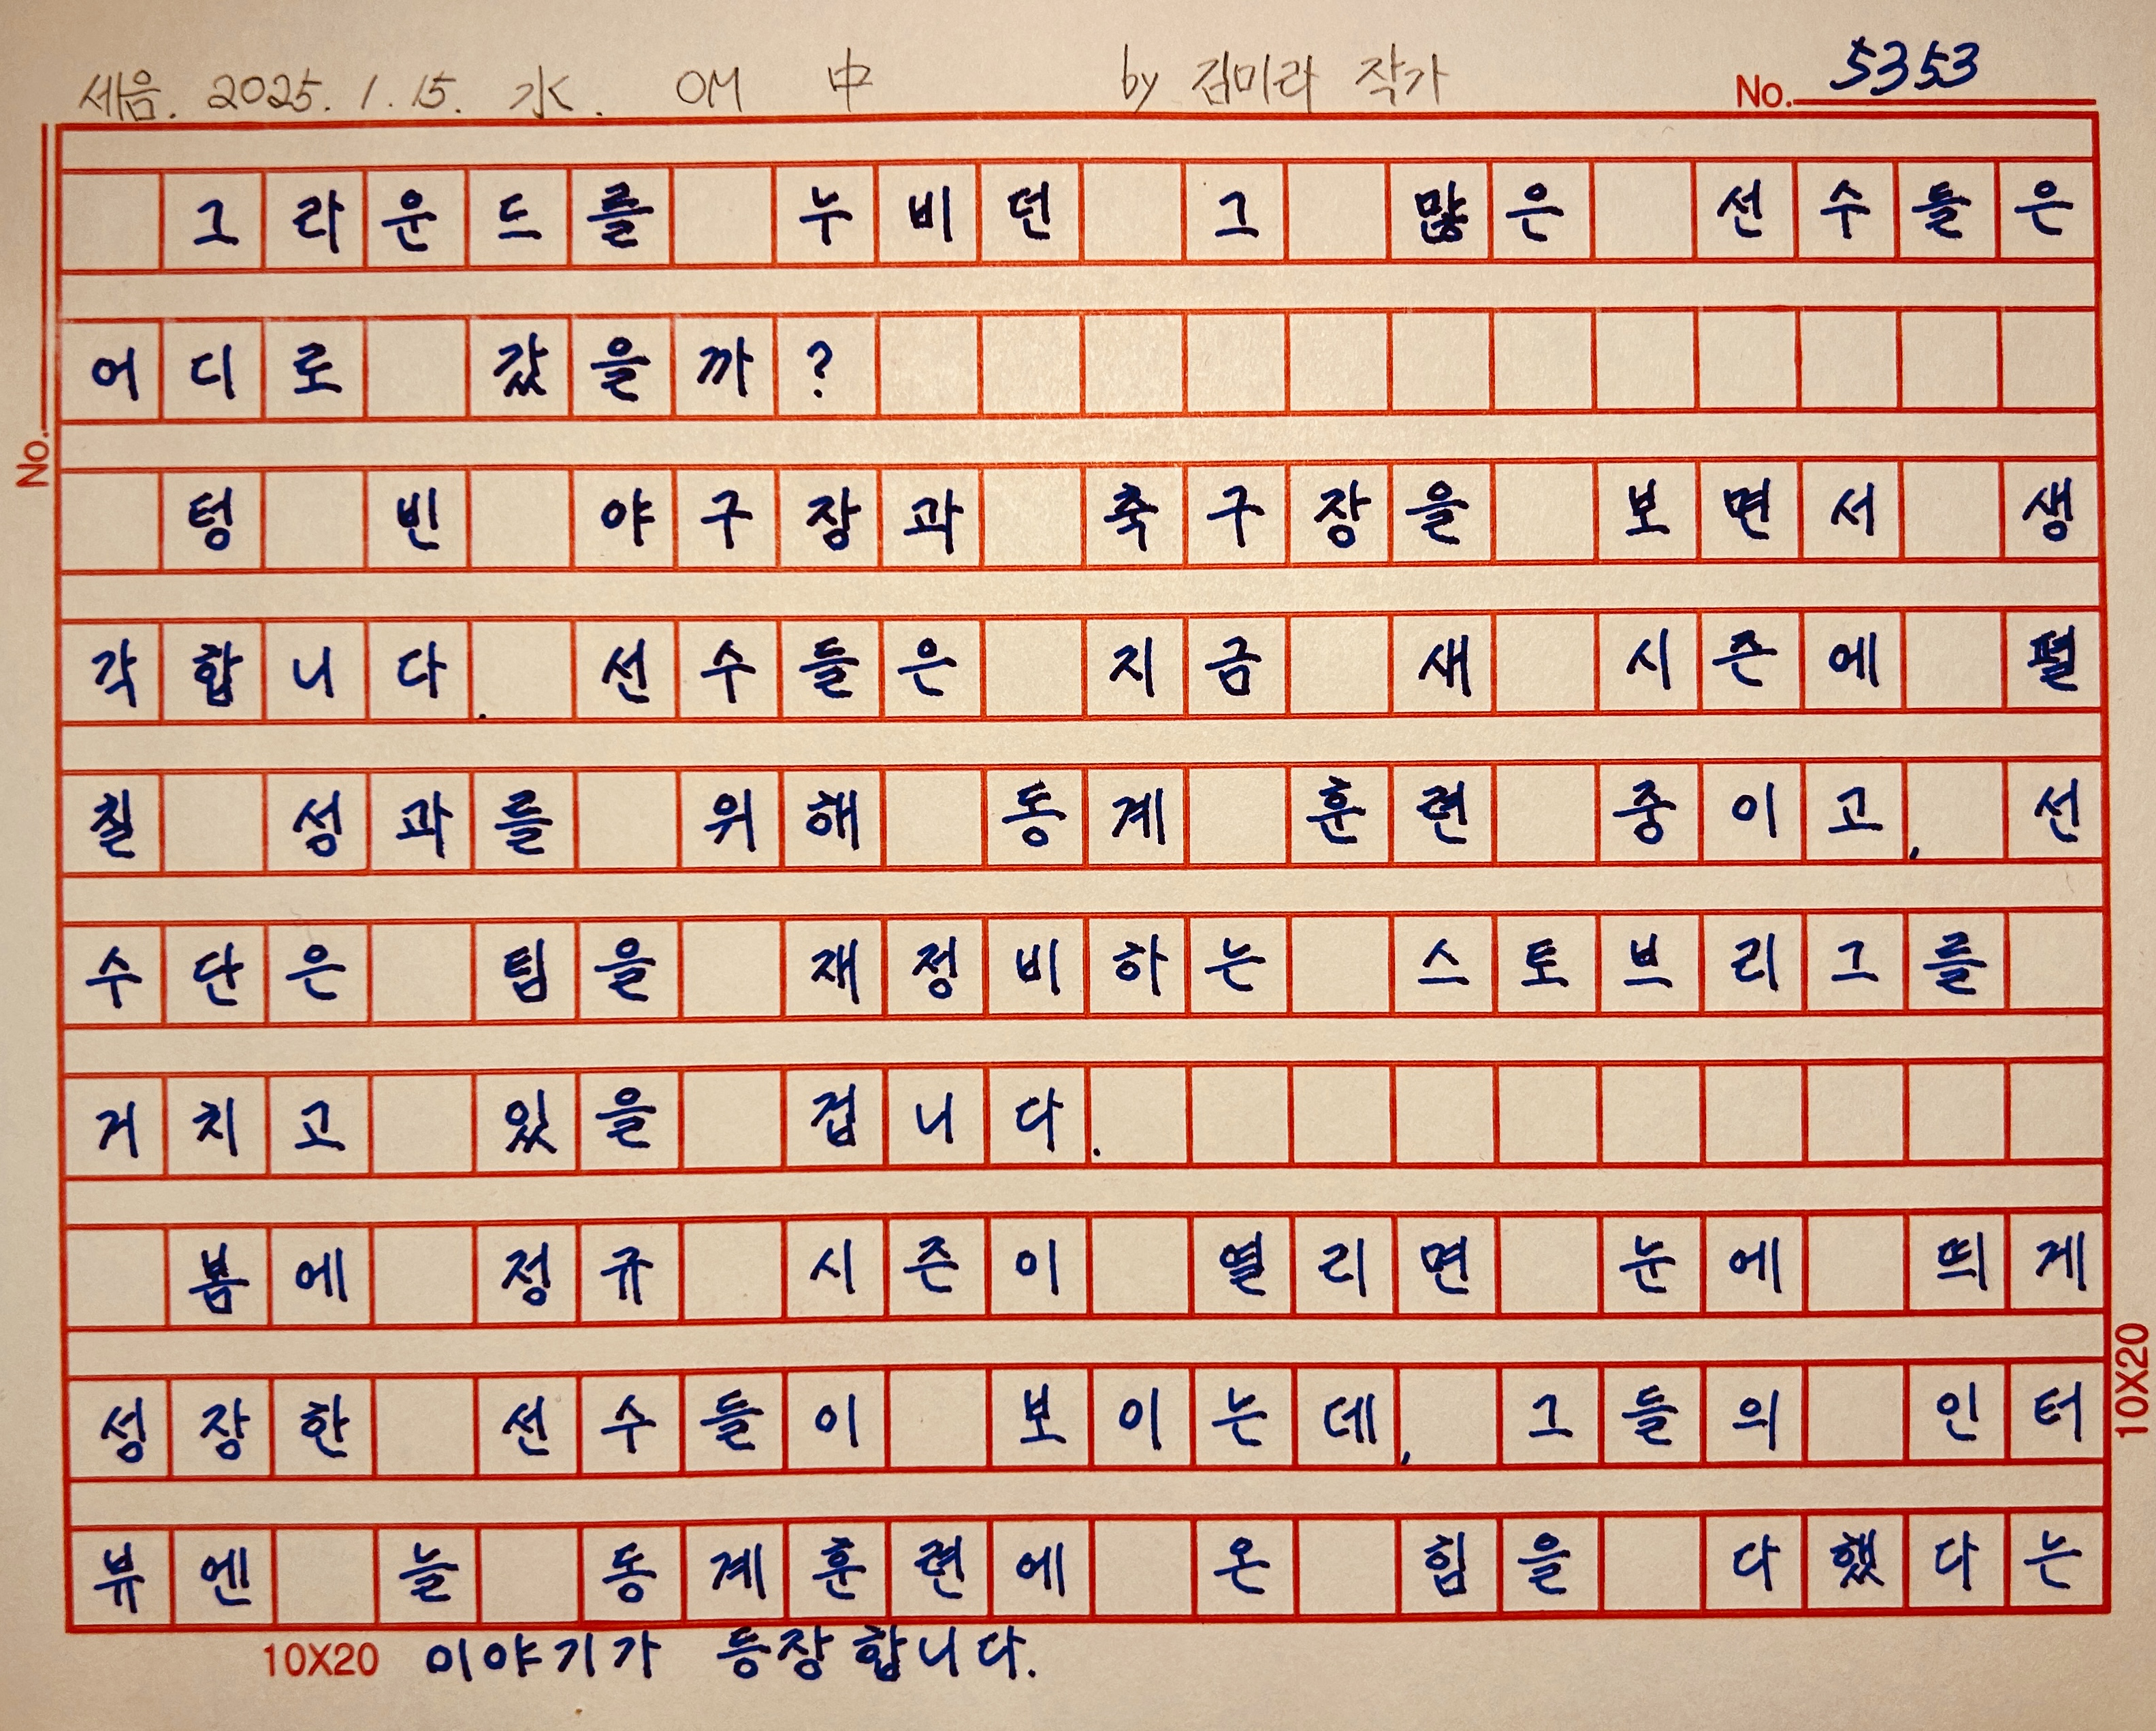 세음. 2025. 1. 15. 水. OM 中 by 김미라 작가 No. 5353
그라운드를 누비던 그 많은 선수들은
어디로 갔을까?
텅 빈 야구장과 축구장을 보면서 생
각합니다. 선수들은 지금 새 시즌에 펼
칠 성과를 위해 동계 훈련 중이고, 선
수단은 팀을 재정비하는 스토브리그를
거치고 있을 겁니다.
봄에 정규 시즌이 열리면 눈에 띄게
성장한 선수들이 보이는데, 그들의 인터
뷰엔 늘 동계훈련에 온 힘을 다했다는
10X20 이야기가 등장합니다.
No.
10X20